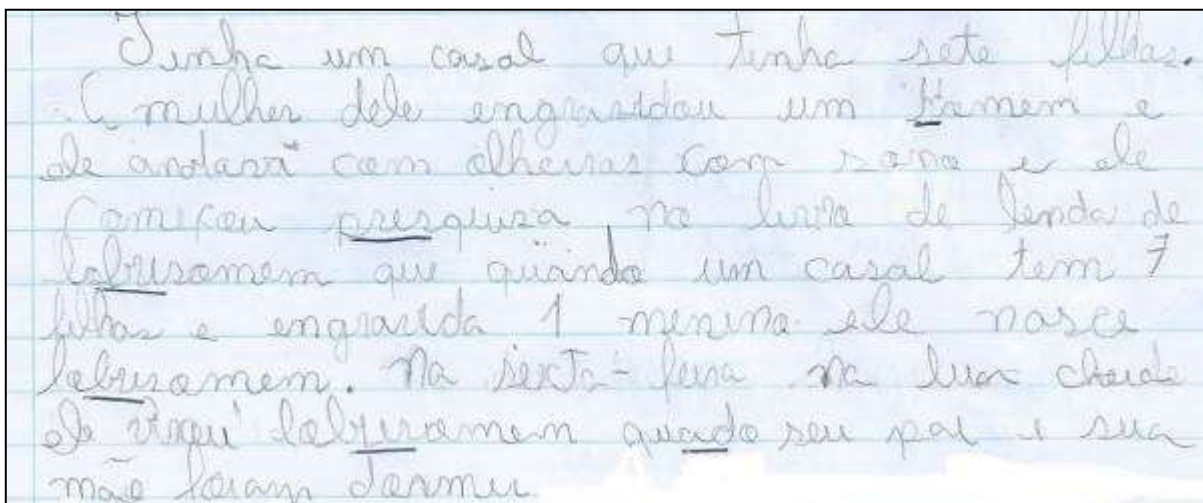 Tinha um casal que tinha sete filhas.
A mulher dele engravidou um homem e
ele andava com olheiras com sono e ele
começou presquisa no livro de lenda de
lobrisomem que quando um casal tem 7
filhas e engravida 1 menino ele nasce
lobrisomem. Na sexta-feira na lua cheida
ele virou lobrisomem quado seu pai e sua
mãe foram dormir